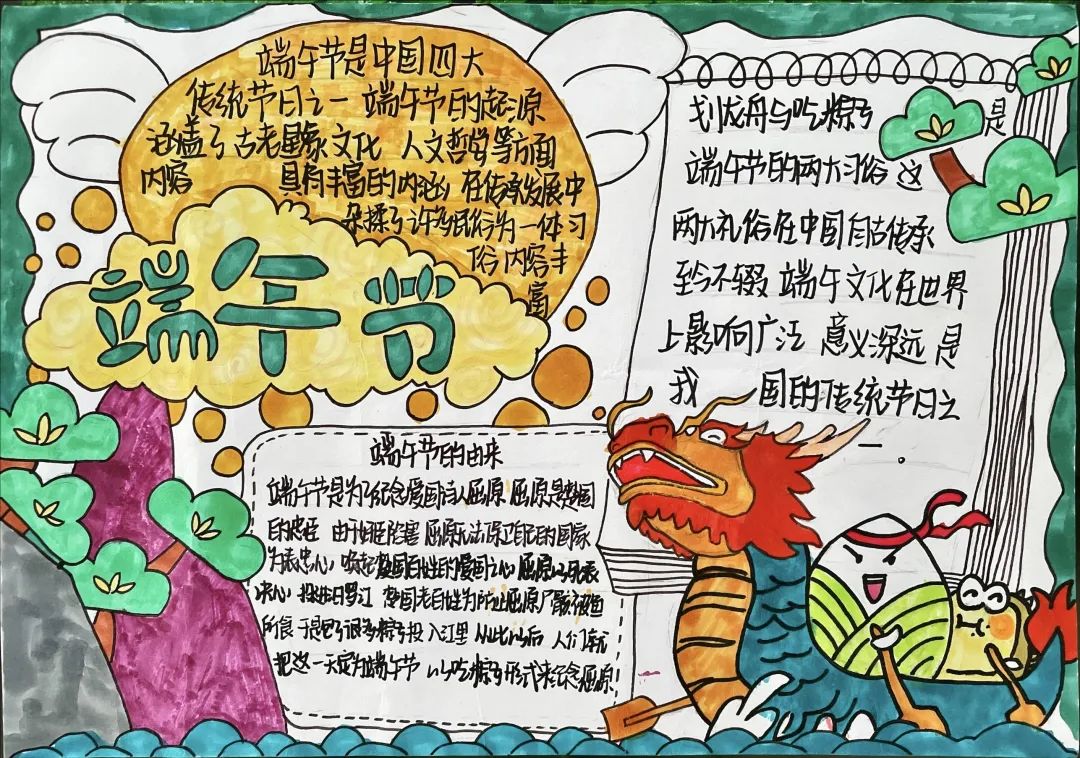 端午节是中国四大
传统节日之一 端午节的起源
涵盖了古老星象文化 人文哲学等方面
内容 具有丰富的内涵 在传承发展中
杂揉了许多民俗为一体 习
俗内容丰
富
端午节
端午节的由来
端午节是为了纪念爱国诗人屈原 屈原是楚国
的大臣 由于奸臣陷害 屈原无法保卫自己的国家
为表忠心 唤起爱国百姓的爱国之心 屈原以死表
决心 投汨罗江 楚国老百姓为
所食 于是包了很多粽子投入江里 从此以后 人们就
把这一天定为端午节 以吃粽子形式来纪念屈原
划龙舟与吃粽子 是
端午节的两大习俗 这
两大礼俗在中国自古传承
至今不辍 端午文化在世界
上影响广泛 意义深远 是
我 国的传统节日之
一 。